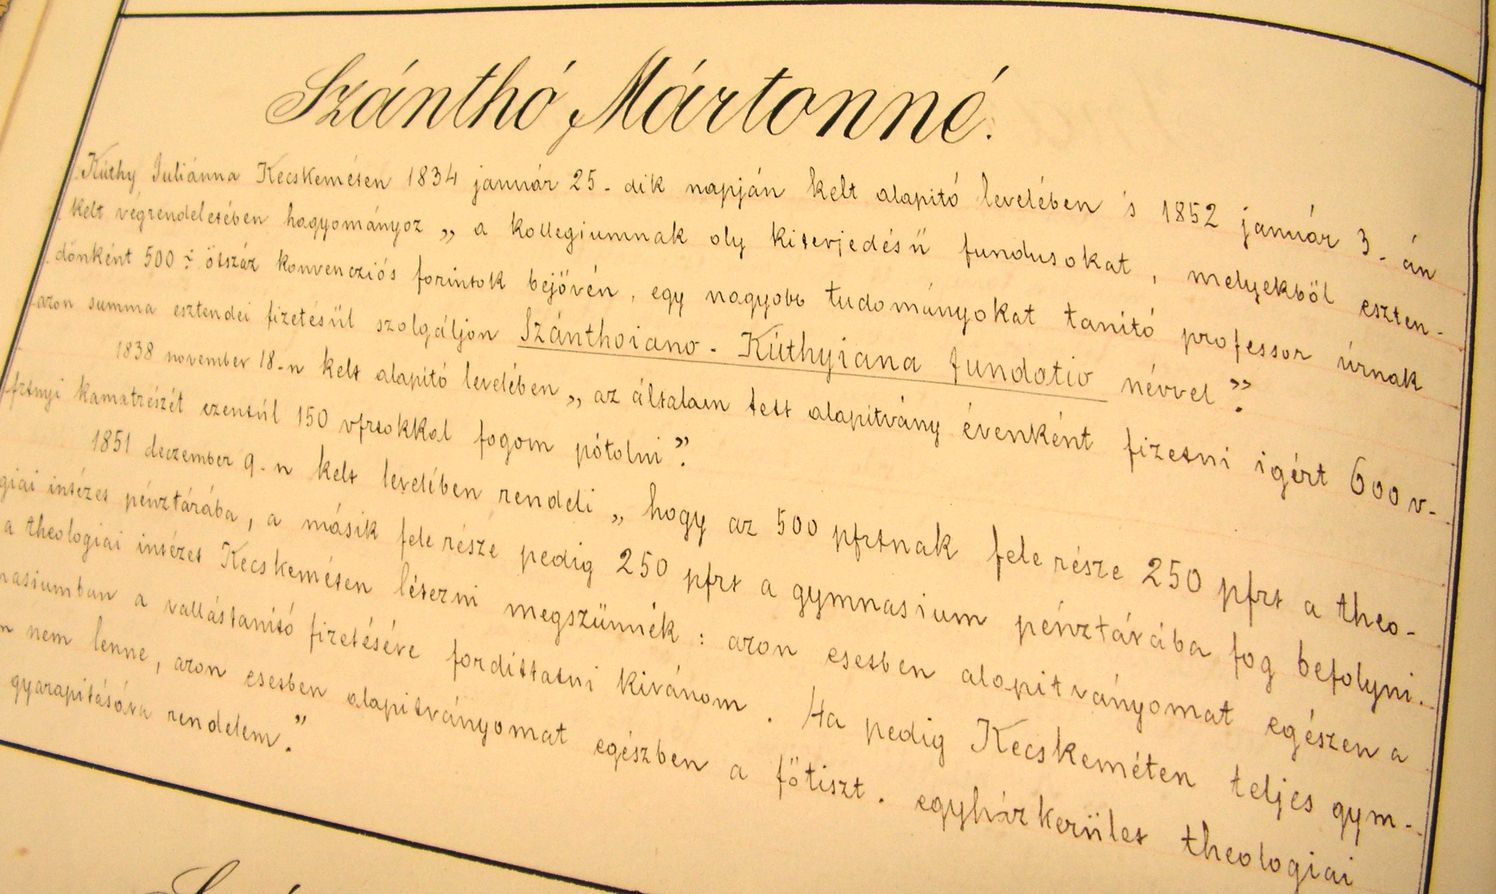 Szánthó Mártonné.
Kúthy Juliánna Kecskeméten 1834 január 25-dik napján kelt alapitó levelében 's 1852 január 3-án
kelt végrendeletében hagyományoz „a kollegiumnak oly kiterjedésű fundusokat, melyekből eszten-
dőnként 500 ÷ ötszáz konvencziós forintok bejövén, egy nagyobb tudományokat tanitó professor úrnak
azon summa esztendei fizetésül szolgáljon Szánthoiano-Kúthyiana fundatio névvel”.
1838 november 18-n kelt alapitó levelében „az általam tett alapitvány évenként fizetni igért 600 v-
frtnyi kamatrészét ezentúl 150 vfrtokkal fogom pótolni”.
1851 deczember 9-n kelt levelében rendeli „hogy az 500 pfrtnak fele része 250 pfrt a theo-
giai intézet pénztárába, a másik fele része pedig 250 pfrt a gymnasium pénztárába fog befolyni.
a theologiai intézet Kecskeméten létezni megszünnék: azon esetben alapitványomat egészen a
nasiumban a vallástanitó fizetésére fordittatni kivánom. Ha pedig Kecskeméten teljes gym-
nem lenne, azon esetben alapitványomat egészben a főtiszt. egyházkerület theologiai
gyarapitására rendelem.”